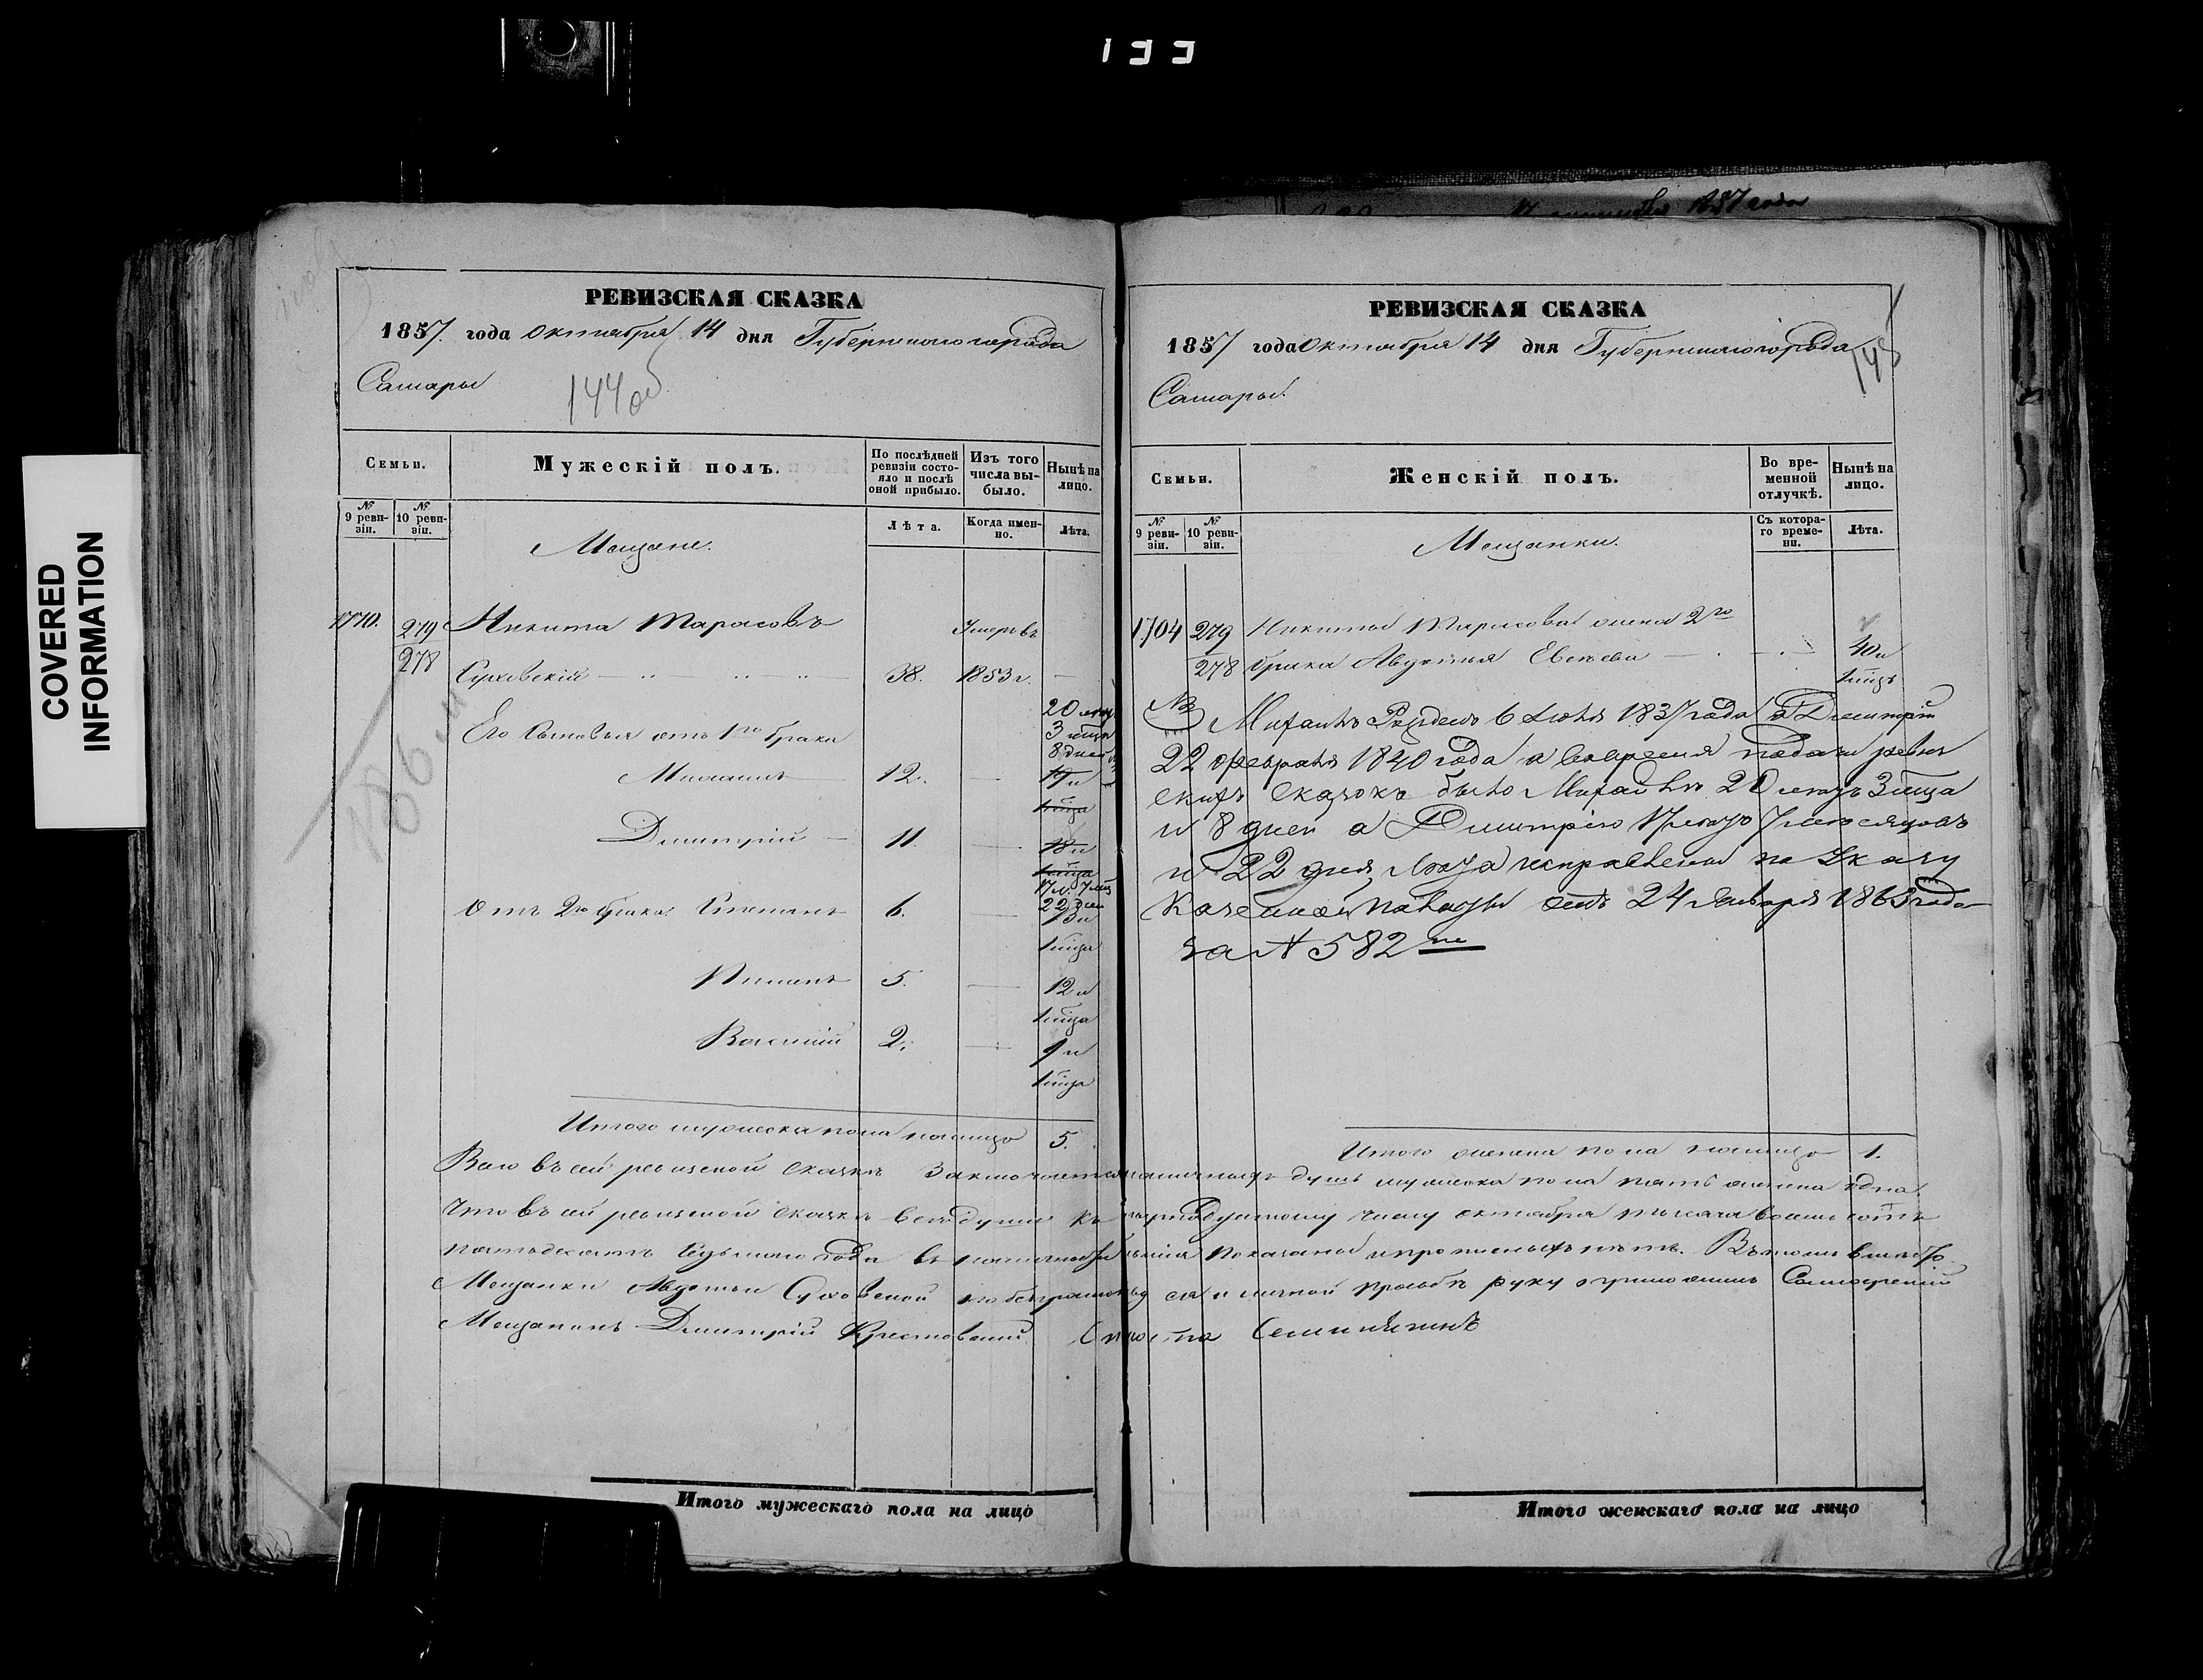 133
COVERED
INFORMATION
РЕВИЗСКАЯ СКАЗКА
1857. года Октября 14 дня Губернского города
Самары
144об
Семьи.
Мужескій полъ.
По послѣдней ревизіи состояло и послѣ оной прибыло.
Изъ того числа выбыло.
Нынѣ на лицо.
№ 9 ревизіи.
№ 10 ревизіи.
Лѣта.
Когда именно.
Лѣта.
Мещане.
1710. 279 Никита Тарасовъ Умеръ въ
278 Суховскій 38. 1853 г.
20 летъ
3 мѣца
8 дней
Его сыновья отъ 1го брака
Михаилъ 12. 19 и
1 мѣца
Дмитрій 11. 18 и
1 мѣца
17 л. 7 мѣц
22 дня
Отъ 2го брака Степанъ 6. 13 и
1 мѣца
Пименъ 5. 12 и
1 мѣца
Василий 2. 9 и
1 мѣца
Итого мужеска пола налицо 5.
РЕВИЗСКАЯ СКАЗКА
1857 года Октября 14 дня Губернского города
145
Самары.
Семьи.
Женскій полъ.
Во временной отлучкѣ.
Нынѣ на лицо.
№ 9 ревизіи.
№ 10 ревизіи.
Съ котораго времени.
Лѣта.
Мещанки.
1704 279 Никиты Тарасова жена 2го
278 брака Авдотья 40 и
1 мѣцъ
Михаилъ Рожденъ 6 Июля 1837 года а Дмитрій
22 февраля 1840 года а вовремя подачи ревиз
скихъ сказокъ было Михаилѣ 20 летъ 3 мѣца
и 8 дней а Дмитрію 17 летъ 7 месяцовъ
и 22 дня, лѣта исправлены по Указу
Казенной палаты отъ 24 Января 1863 года
за № 582 мъ
Итого женска пола налицо 1.
Всего въ сей ревизской сказкѣ заключается наличныхъ душъ мужеска пола пять женска одна.
Что въ сей ревизской сказкѣ все души къ четырнадцатому числу октября тысяча восемь сотъ
пятьдесятъ седьмого года въ наличности показаны и прописныхъ нетъ. Въ томъ вместо
Мещанки Авдотьи Суховской по безграмотству ея и личной просьбѣ руку приложилъ Самарский
Мещанинъ Дмитрій Крестовский Староста
Итого мужескаго пола на лицо
Итого женскаго пола на лицо